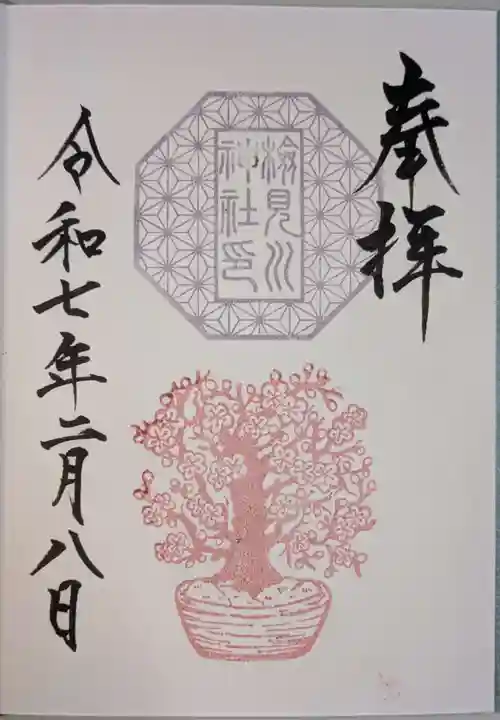 奉拝
検見川
神社印
令和七年二月八日